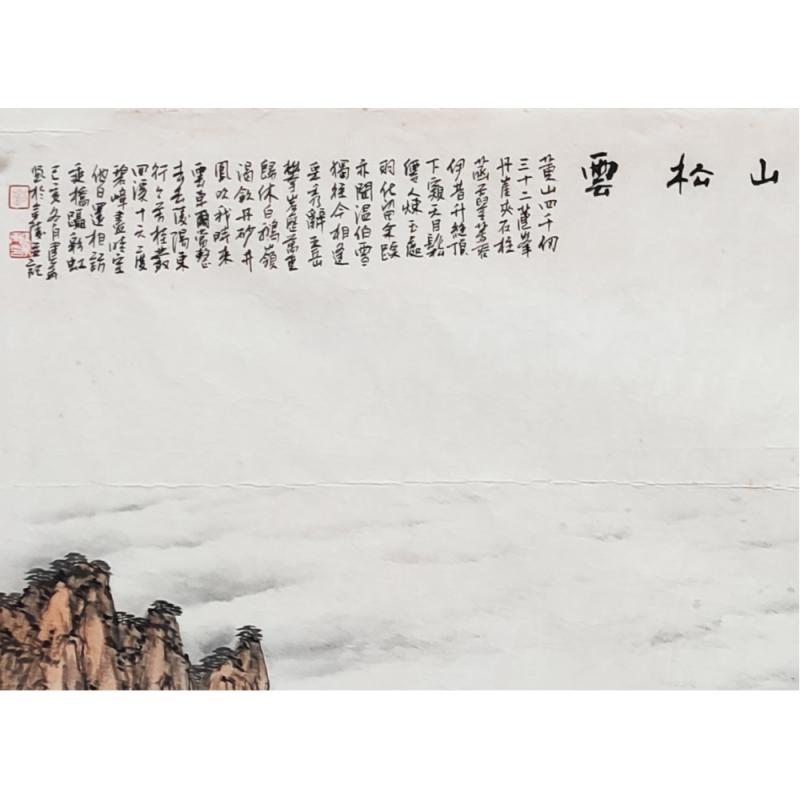 山松雲
黃山四千仞
三十二蓮峯
丹崖夾石柱
菡萏
伊昔升絕頂
下窺天目鬆
僊人煉玉處
羽化留
亦聞温伯雪
獨往今相逢
采秀辭五岳
攀岩歷萬重
歸休白鵝嶺
渴飲丹砂井
鳳吹我時來
雲車爾當整
去去陵陽東
行々芳桂叢
回溪十六度
碧嶂盡晴空
他日還相訪
乘橋躡彩虹
己亥冬月建
於 並記